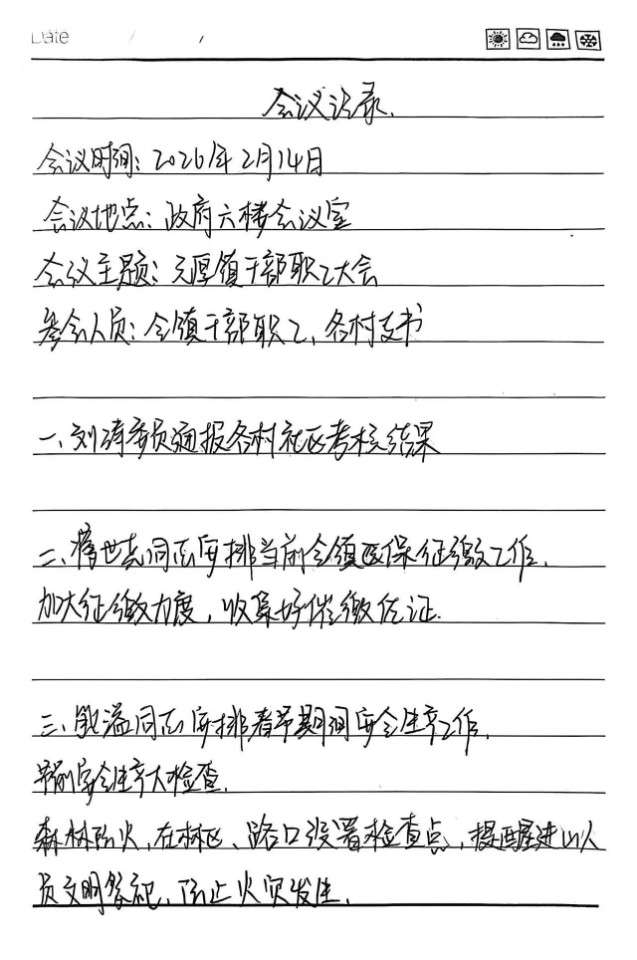 Date / /
会议记录.
会议时间: 2026年2月14日
会议地点: 政府六楼会议室
会议主题: 元厚镇干部职工大会
参会人员: 全镇干部职工、各村支书
一、刘涛委员通报各村社区考核结果
二、同志安排当前全镇医保征缴工作.
加大征缴力度, 收集好催缴佐证.
三、同志安排春节期间安全生产工作.
安全生产大检查.
森林防火, 在林区、路口设置检查点, 提醒进山人
员文明祭祀, 防止火灾发生.